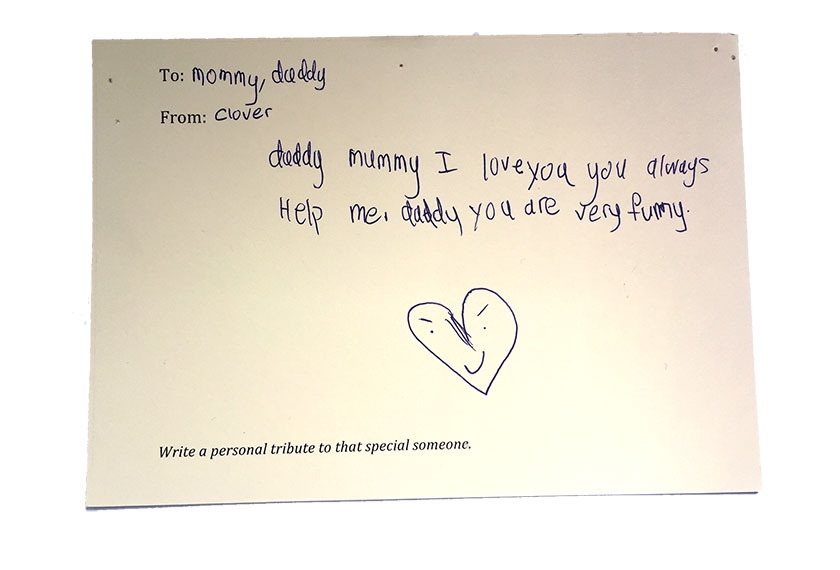 To: mommy, daddy
From: Clover
daddy mummy I love you you always
Help me. daddy you are very funny.
Write a personal tribute to that special someone.